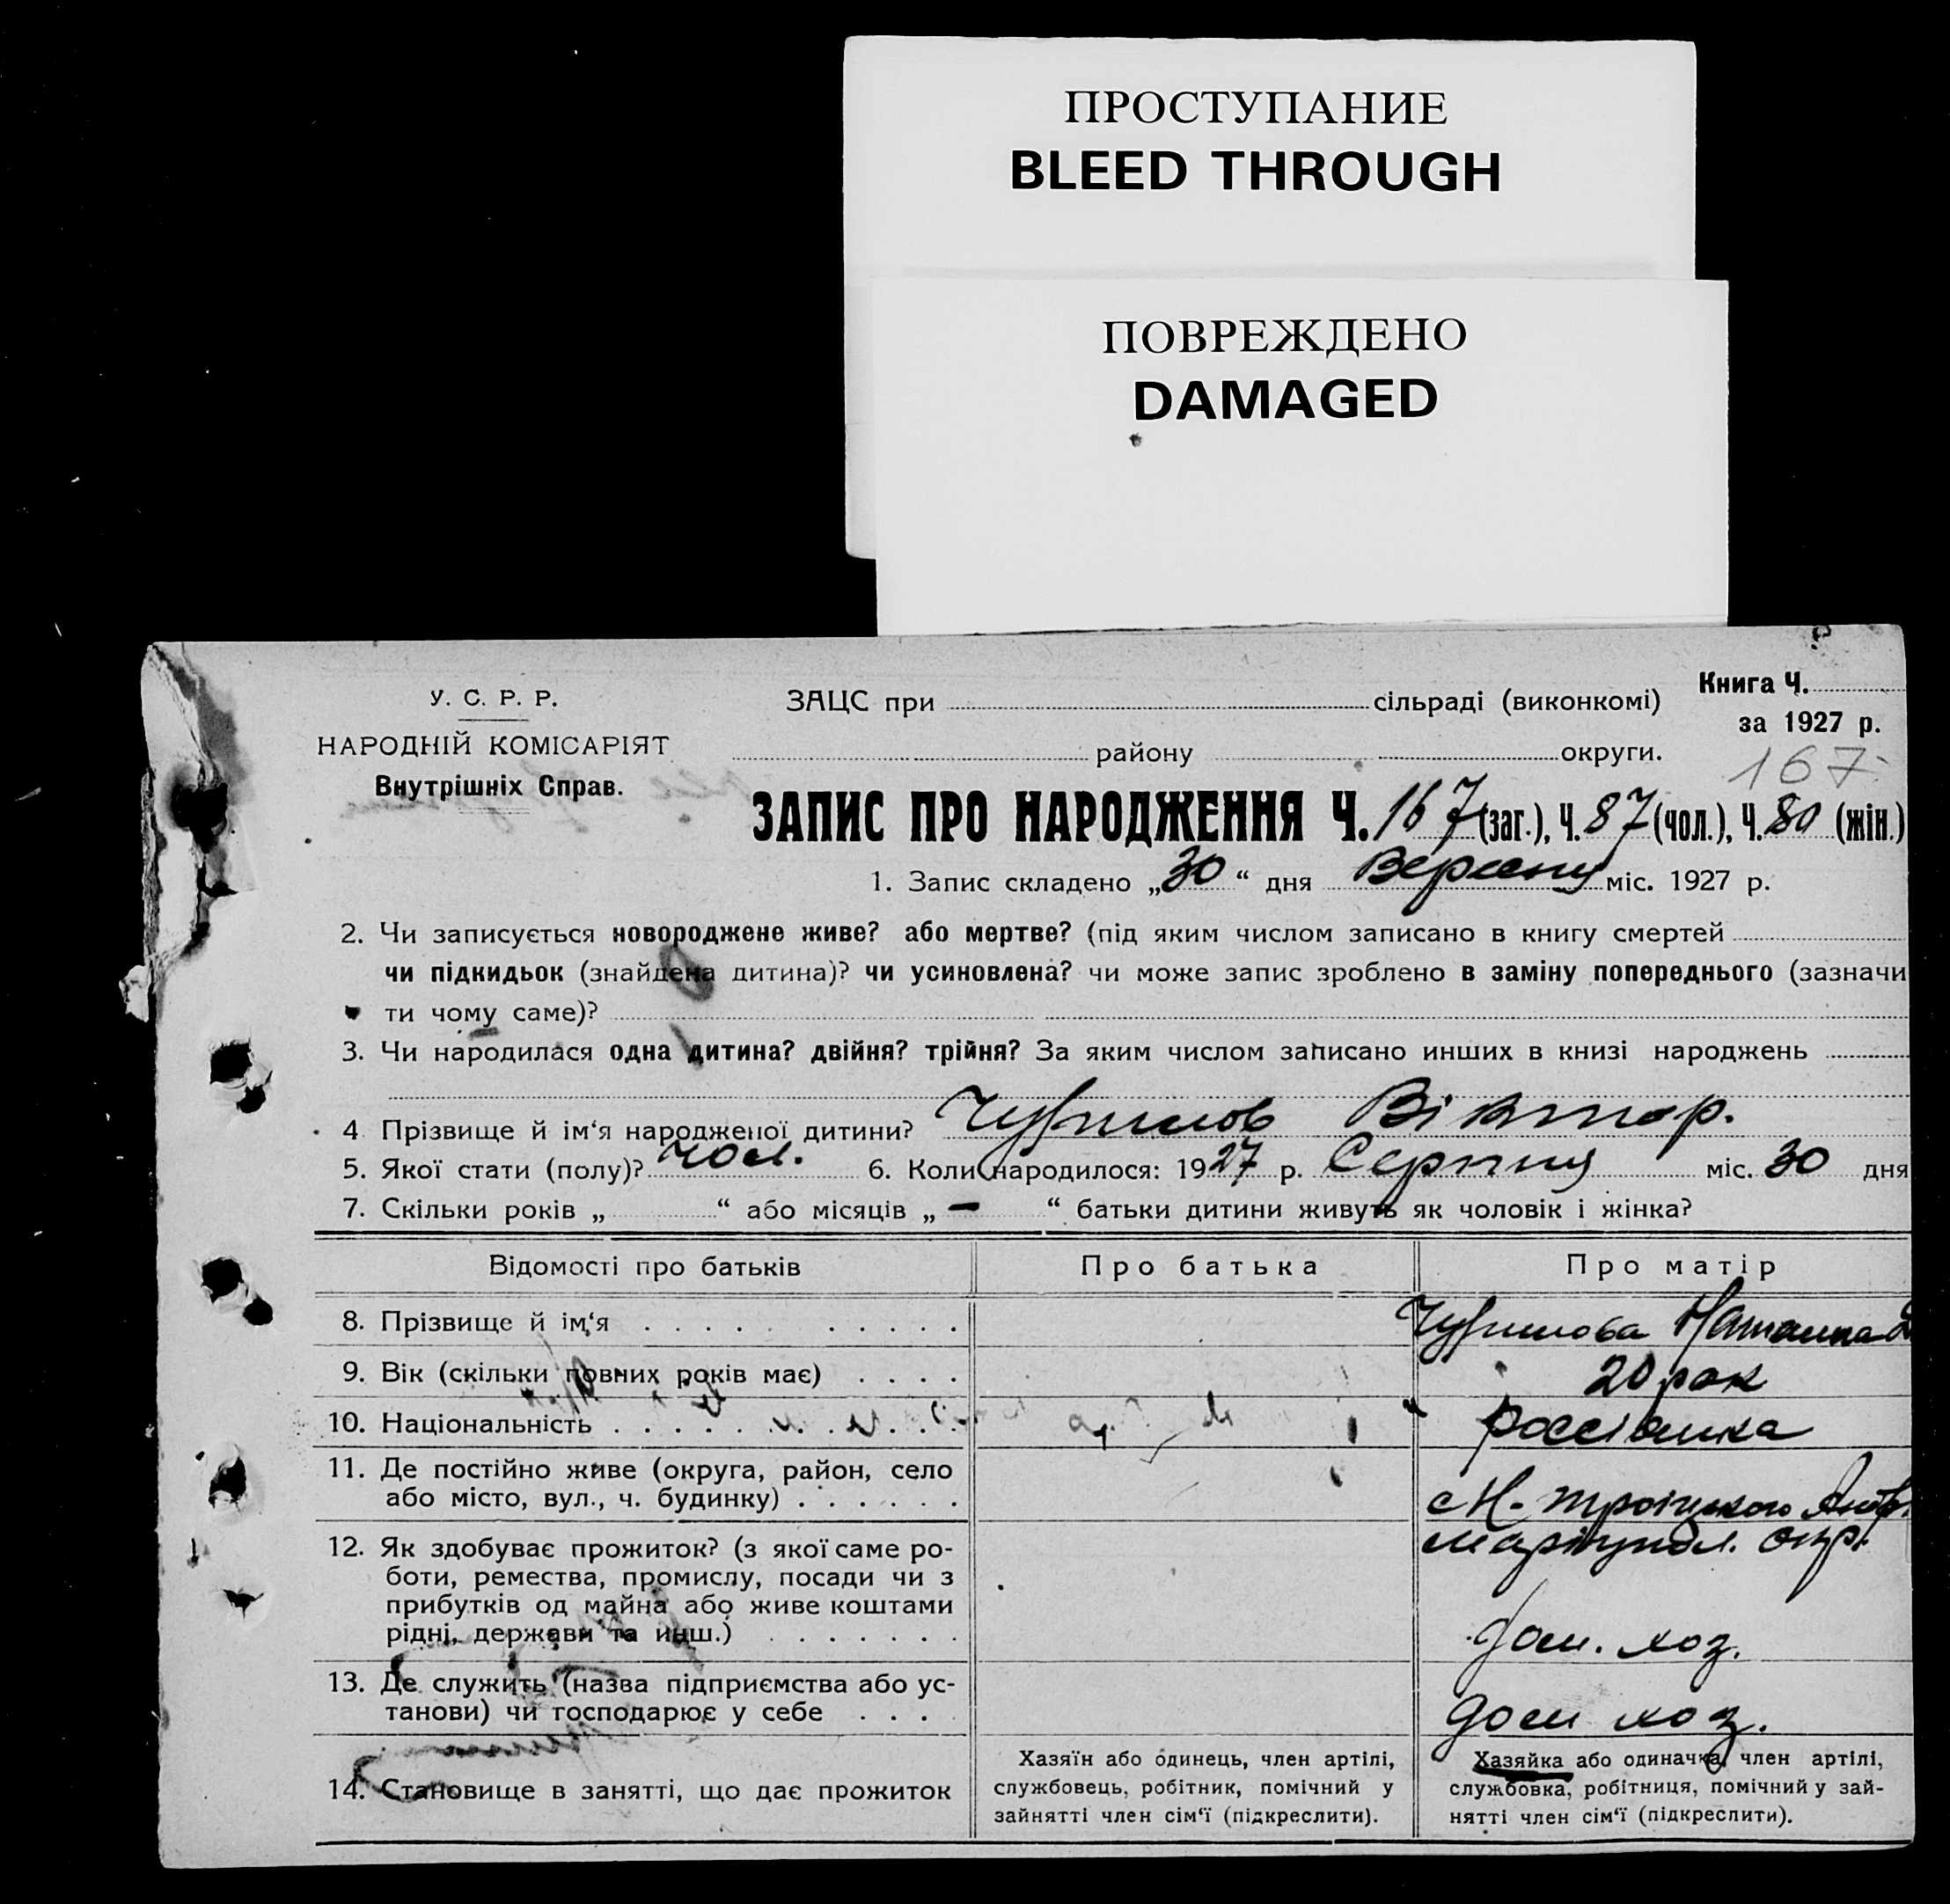 ПРОСТУПАНИЕ
BLEED THROUGH
ПОВРЕЖДЕНО
DAMAGED
У. С. Р. Р.
НАРОДНІЙ КОМІСАРІЯТ
Внутрішніх Справ.
ЗАЦС при сільраді (виконкомі)
району округи.
Книга Ч.
за 1927 р.
167
ЗАПИС ПРО НАРОДЖЕННЯ Ч. 167 (заг.), Ч. 87 (чол.), Ч. 80 (жін.)
1. Запис складено „30“ дня Вересня міс. 1927 р.
2. Чи записується новороджене живе? або мертве? (під яким числом записано в книгу смертей
чи підкидьок (знайдена дитина)? чи усиновлена? чи може запис зроблено в заміну попереднього (зазначи
ти чому саме)?
3. Чи народилася одна дитина? двійня? трійня? За яким числом записано инших в книзі народжень
4 Прізвище й ім‘я народженої дитини? Віктор.
5. Якої стати (полу)? чол. 6. Коли народилося: 1927 р. Серпня міс. 30 дня
7. Скільки років „ “ або місяців „ — “ батьки дитини живуть як чоловік і жінка?
Відомості про батьків
Про батька
Про матір
8. Прізвище й ім‘я . . . . . . . . . .
9. Вік (скільки повних років має) . . . .
20 рок
10. Національність . . . . . . . . . . .
россіянка
11. Де постійно живе (округа, район, село
або місто, вул., ч. будинку) . . . . . .
с Н-Троіцького
окр.
12. Як здобуває прожиток? (з якої саме ро-
боти, ремества, промислу, посади чи з
прибутків од майна або живе коштами
рідні, держави та инш.) . . . . . . .
дом. хоз.
13. Де служить (назва підприємства або ус-
танови) чи господарює у себе . . . .
дом хоз.
14. Становище в занятті, що дає прожиток
Хазяїн або одинець, член артілі,
службовець, робітник, помічний у
зайнятті член сім‘ї (підкреслити).
Хазяйка або одиначка, член артілі,
службовка, робітниця, помічний у зай-
нятті член сім‘ї (підкреслити).